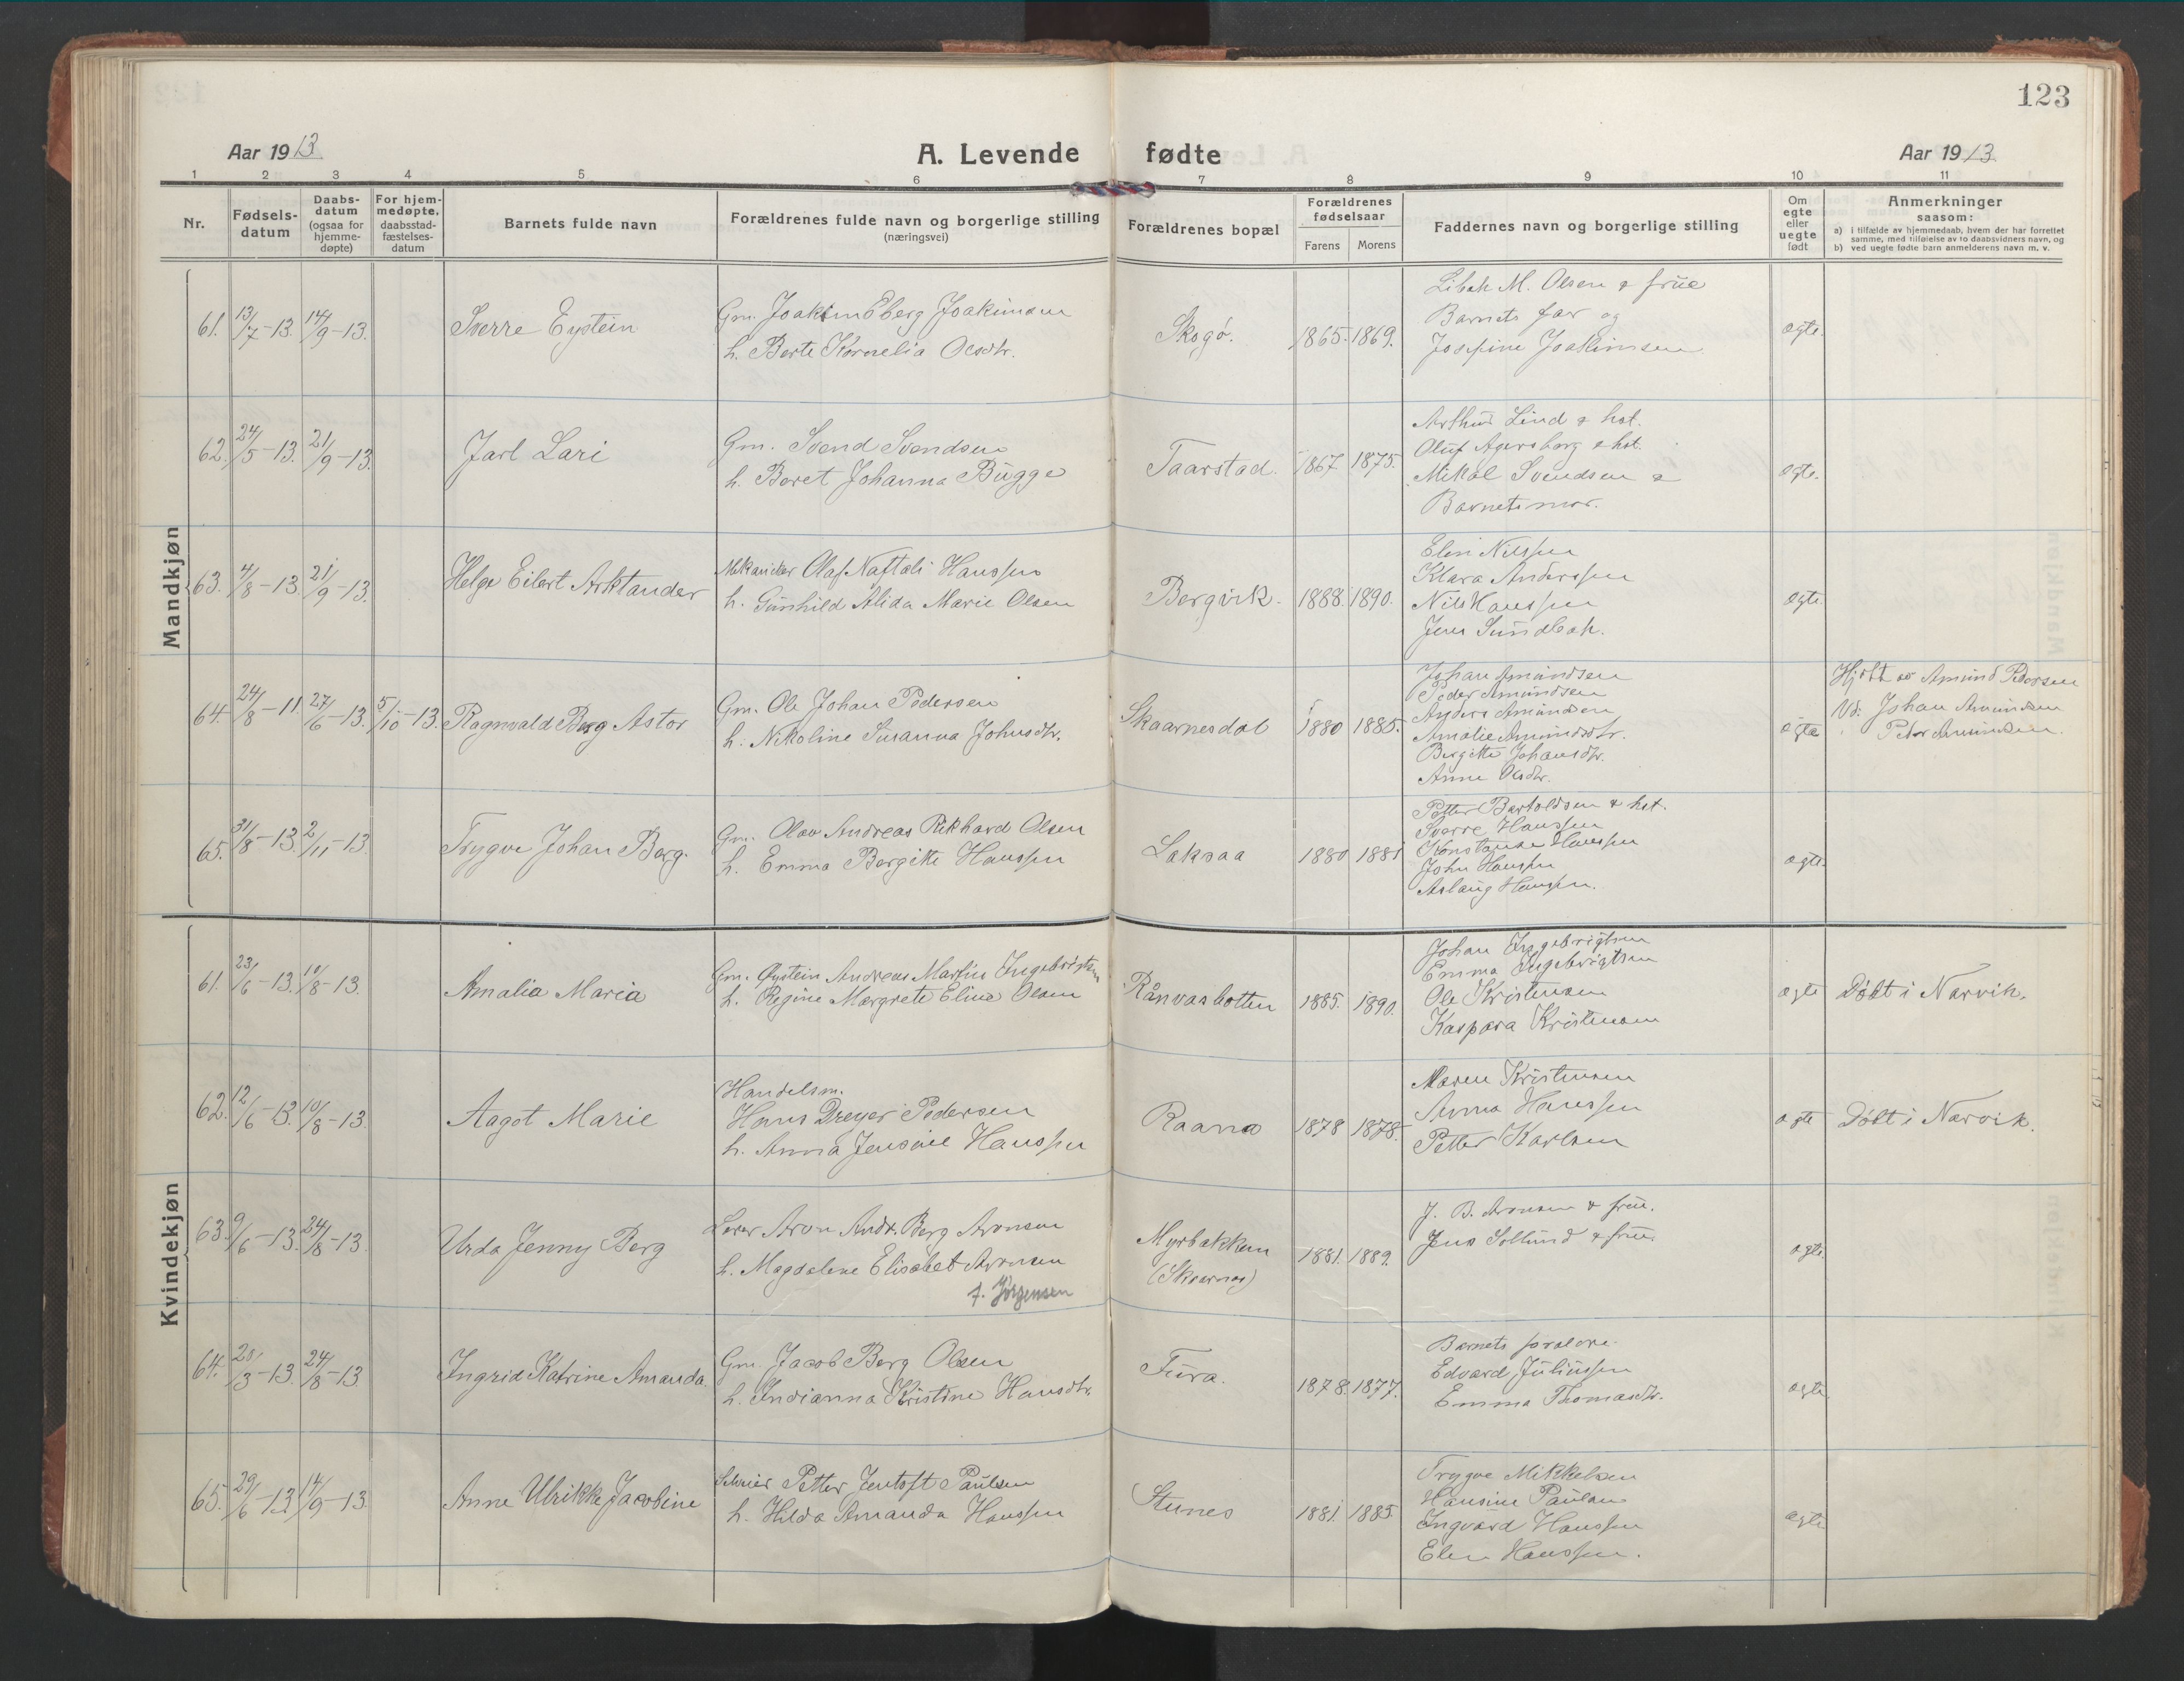 123
Aar 1913
A. Levende fødte
Aar 1913
1 2 3 4 5 6 7 8 9 10 11
Nr.
Fødselsdatum
Daabsdatum (ogsaa for hjemmedøpte)
For hjemmedøpte, daabsstadfæstelsesdatum
Barnets fulde navn
Forældrenes fulde navn og borgerlige stilling (næringsvei)
Forældrenes bopæl
Forældrenes fødselsaar
Farens Morens
Faddernes navn og borgerlige stilling
Om egte eller uegte født
Anmerkninger saasom:
a) i tilfælde av hjemmedaab, hvem der har forrettet samme, med tilføielse av to daabsvidners navn, og
b) ved uegte fødte barn anmelderens navn m. v.
Mandkjøn
61. 13/7-13. 14/9-13. Sverre Eystein
Gm. Joakim Eberg Joakimsen
h. Berte Kornelia Olsdtr.
Skogø. 1865. 1869.
M. Olsen & frue
Barnets far og
Josefine Joakimsen
egte.
62. 24/5-13. 21/9-13. Jarl Lari
Gm. Svend Svendsen
h. Beret Johanna Bugge
Taarstad. 1867. 1875.
Arthur Lind & hst.
Oluf Agersborg & hst.
Mikal Svendsen &
Barnets mor.
egte.
63. 4/8-13. 21/9-13. Helge Eilert Arktander
Mekaniker Olaf Naftali Hanssen
h. Gunhild Alida Marie Olsen
Bergvik. 1888. 1890.
Elen Nilssen
Klara Anderssen
Nils Hanssen
Jens Sundbak.
egte.
64. 24/8-11 27/6-13. 5/10-13. Ragnvald Berg Astor
Gm. Ole Johan Pedersen
h. Nikoline Susanna Johnsdtr.
Skaarnesdal 1880 1885.
Johan Amundsen
Peder Amundsen
Anders Amundsen
Amalie Amundsdtr.
Bergitte Johansdtr.
Anne Olsdtr.
egte
Hjdøbt av Amund Pedersen
Vd: Johan Amundsen
Peder Amundsen.
65. 31/8-13. 2/11-13. Trygve Johan Berg.
Gm. Olav Andreas Rikhard Olsen
h. Emma Bergitte Hanssen
Laksaa 1880 1881
Petter Bertoldsen & hst.
Sverre Hanssen
Konstanse Hanssen
John Hanssen
Aslaug Hanssen.
egte.
Kvindekjøn
61. 23/6-13. 10/8-13. Amalia Maria
Gm. Øystein Andreas Martin Ingebrigtsen
h. Regine Margrete Eline Olsen
Rånvasbotten 1885. 1890.
Johan Ingebrigtsen
Emma Ingebrigtsen
Ole Kristensen
Kaspara Kristensen
egte Døbt i Narvik.
62. 12/6-13. 10/8-13. Aagot Marie
Handelsm.
Hans Dreyer Pedersen
h. Anna Jensine Hanssen
Raana 1878 1878.
Maren Kristensen
Anna Hanssen
Petter Karlsen
egte Døbt i Narvik.
63. 9/6-13. 24/8-13. Urda Jenny Berg
Lærer Aron Andr. Berg Aronsen
h. Magdalene Elisabet Aronsen
f. Jørgensen
Myrbakken
(Skaarnes) 1881. 1889.
J. B. Aronsen & frue.
Jens Sollund & frue
egte.
64. 20/3-13. 24/8-13. Ingrid Katrine Amanda.
Gm. Jacob Berg Olsen
h. Indianna Kristine Hansdtr.
Fura. 1878. 1877.
Barnets foreldre
Edvard Juliussen
Emma Thomasdtr.
egte
65. 29/6-13. 14/9-13. Anne Ulrikke Jacobine
Petter Jentoft Paulsen
h. Hilda Amanda Hanssen
Stunes 1881. 1885.
Trygve Mikkelsen
Hansine Paulsen
Ingvard Hanssen
Elen Hanssen.
egte